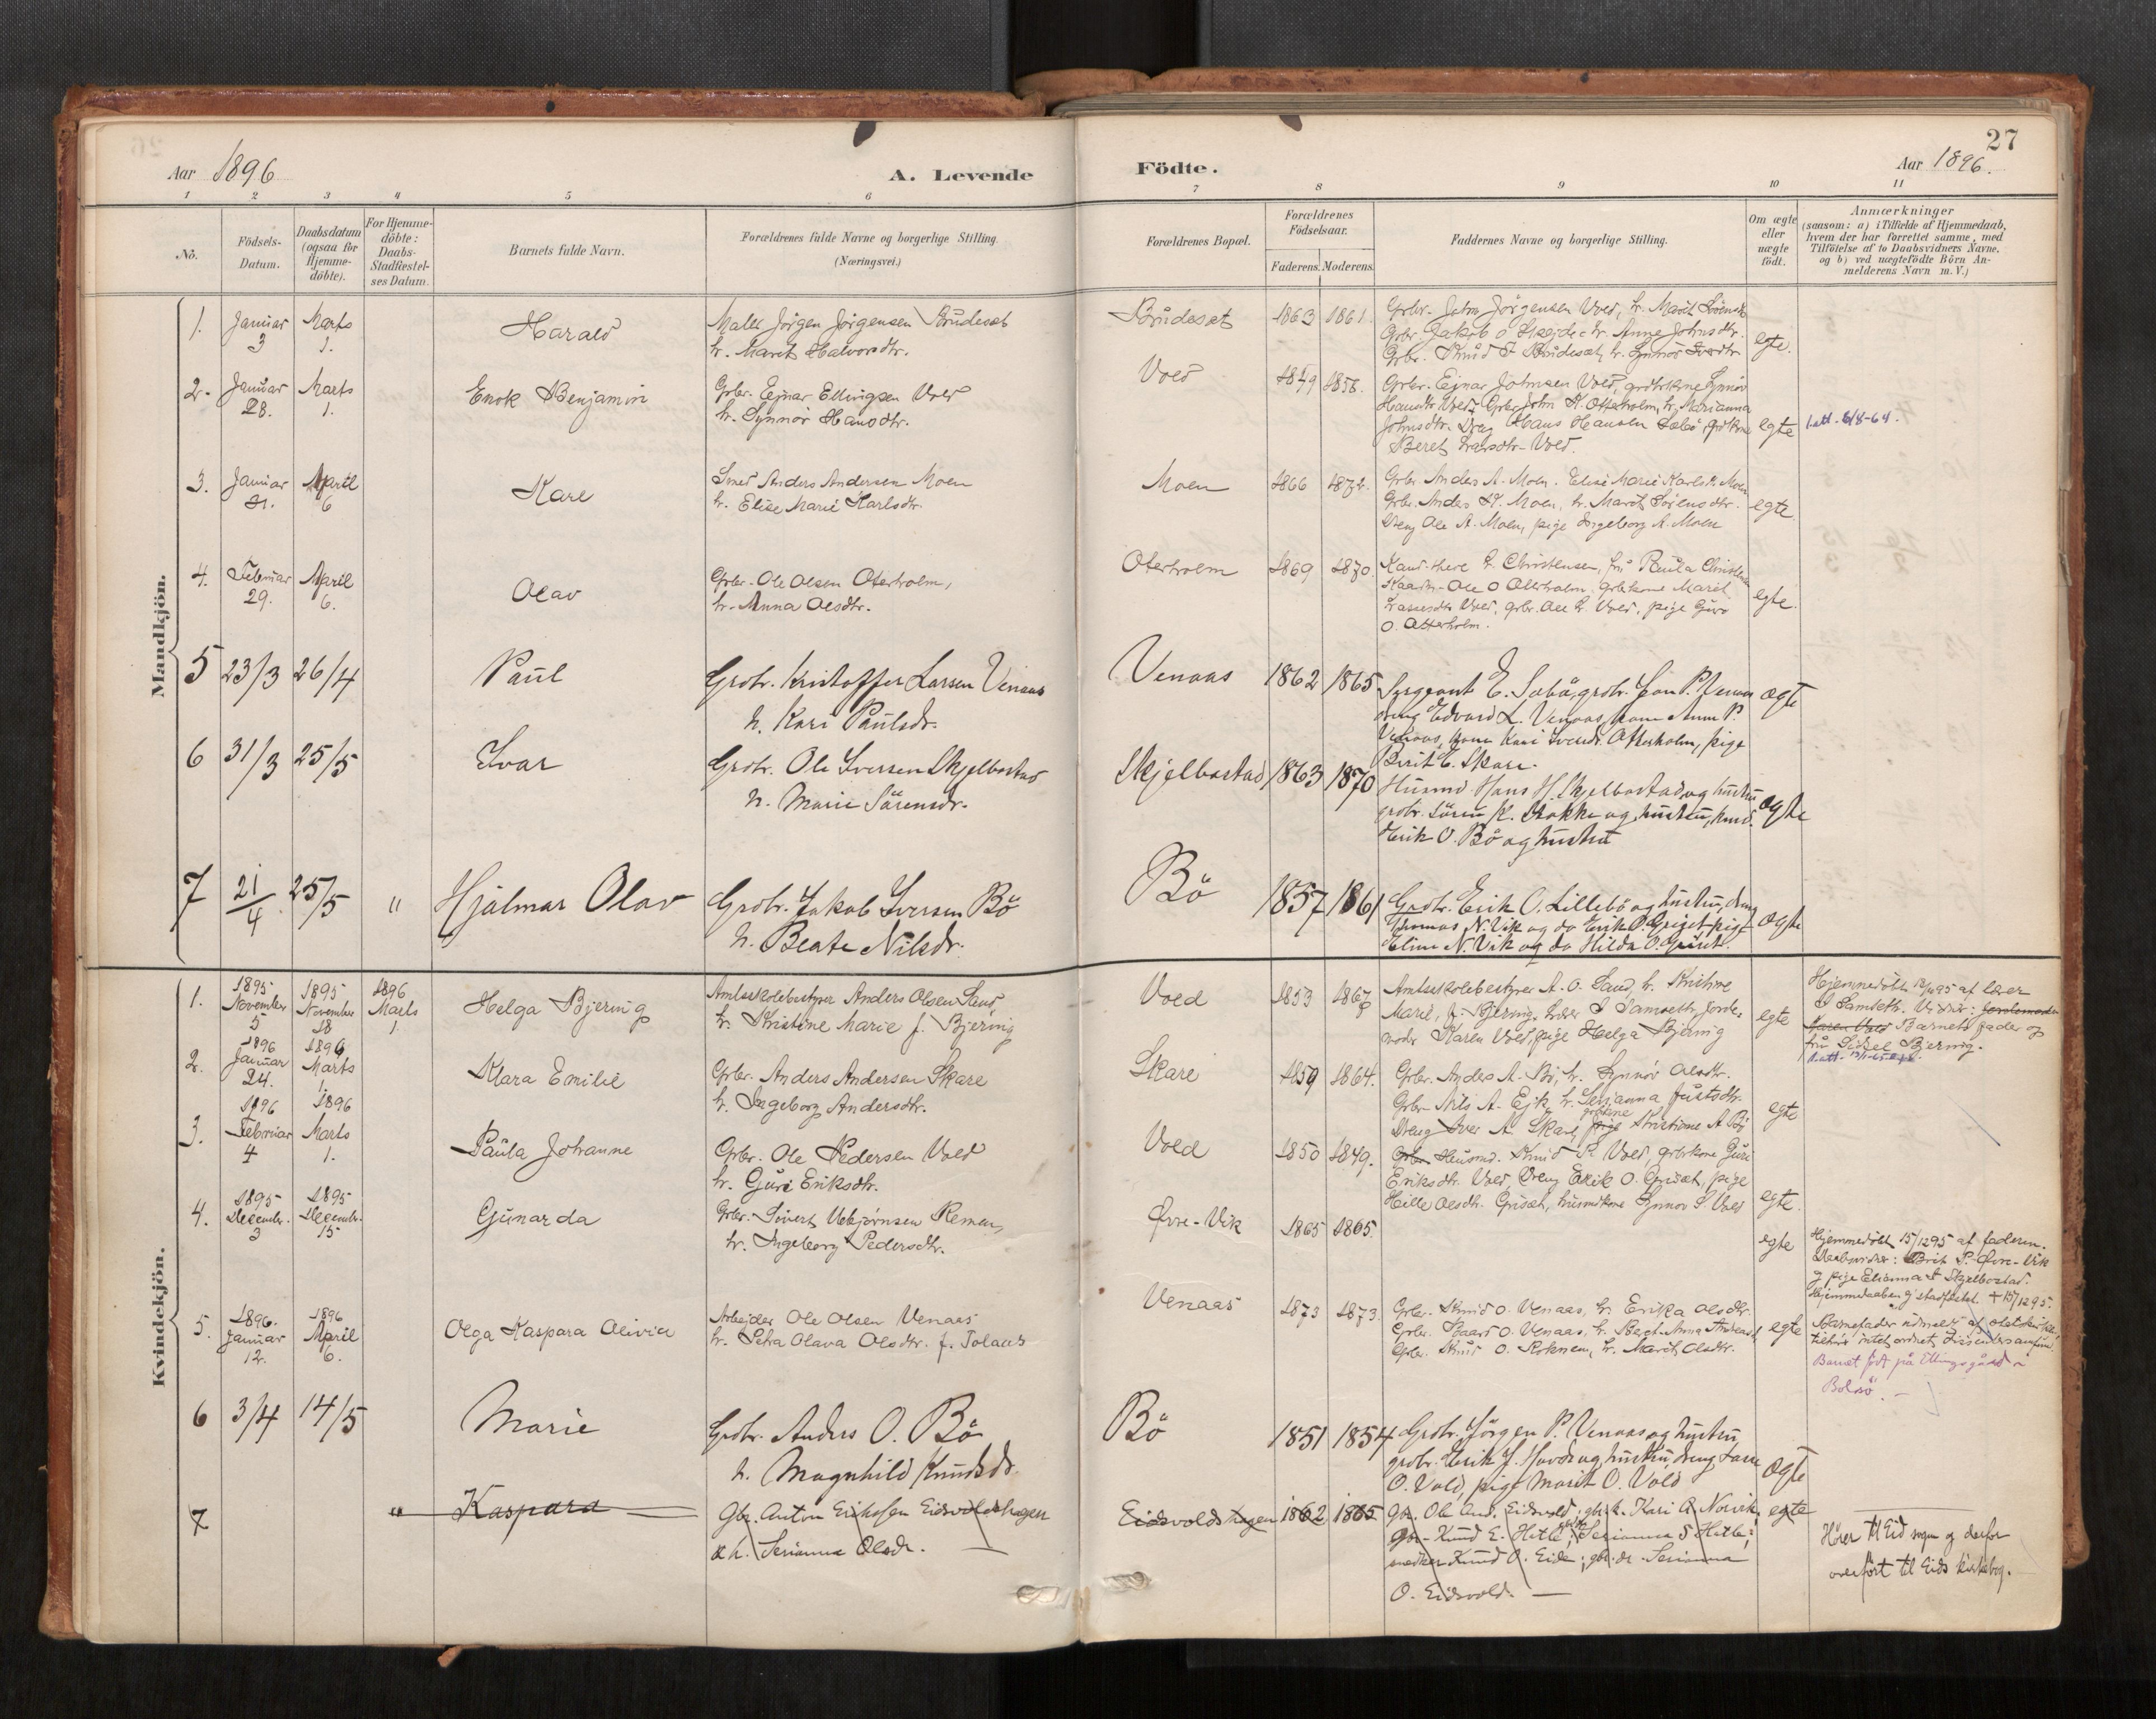 27
Aar 1896
A. Levende
Födte.
Aar 1896.
1 2 3 4 5 6 7 8 9 10 11
No.
Födsels-
Datum.
Daabsdatum
(ogsaa for
Hjemme-
döbte).
For Hjemme-
döbte:
Daabs-
Stadfæstel-
ses Datum.
Barnets fulde Navn.
Forældrenes fulde Navne og borgerlige Stilling.
(Næringsvei.)
Forældrenes Bopæl.
Forældrenes
Födselsaar.
Faderens. Moderens.
Faddernes Navne og borgerlige Stilling.
Om ægte
eller
uægte
födt.
Anmærkninger
(saasom: a) i Tilfælde af Hjemmedaab,
hvem der har forrettet samme, med
Tilföielse af to Daabsvidners Navne.
og b) ved uægtefödte Börn An-
melderens Navn m. V.)
Mandkjön.
1. Januar 3 Marts 1.
Harald
Maler Jörgen Jörgensen Brudeset
h. Marit Halvorsdtr.
Brudeset 1863 1861.
Grbr. John Jörgensen Vold, h. Marit
Grbr. Jakob O. h. Anne Johnsdtr.
Grbr. Knud Brudeset, h. Synnör
egte.
2. Januar 28. Marts 1.
Enok Benjamin
Grbr. Ejnar Ellingsen Vold
h. Synnör Hansdtr.
Vold 1849 1856.
Grbr. Ejnar Johnsen Vold, Synnöv
Hansdtr. Vold, Grbr. John K. Otterholm, h. Marianna
Johnsdtr. Dreng Hans Hansen
Beret Larsdtr. Vold.
egte
1. att. 6/8-64.
3. Januar 31. April 6
Kare
Smed Anders Andersen Moen
h. Elise Marie Karlsdtr.
Moen 1866 1872.
Grbr. Anders A. Moen. Elise Marie Karlsdtr. Moen
Grbr. Anders Moen, h. Marit Sörensdtr.
Dreng Ole A. Moen, pige Ingeborg A. Moen
egte.
4. Februar 29. April 6.
Olav
Grbr. Ole Olsen Oterholm,
h. Anna Olsdtr.
Oterholm 1869 1870.
Kand. theol. Christensen, fru Paula Christensen
Ole O. Otterholm, grbrkone Marit
Larsesdtr. Vold, grbr. Ole L. Vold, pige Guro
O. Otterholm.
egte.
5 23/3 26/4
Paul
Grobr. Kristoffer Larsen Venaas
h. Kari Paulsdr.
Venaas 1862 1865
Sergeant E. Sæbö, grobr. P. Venaas
dreng Edvard L. Venaas, kone Anne P.
Venaas, kone Kari Otterholm, pige
Berit E. Skare.
ægte
6 31/3 25/5
Ivar
Grobr. Ole Iversen Skjelbostad
h. Marie Sörensdr.
Skjelbostad 1863 1870
Husmd. Hans H. Skjelbostad og hustru
grobr. Sören K. og hustru, husmd.
Erik O. Bö og hustru
ægte
7 21/4 25/5 "
Hjalmar Olav
Grobr. Jakob Iversen Bö
h. Beate Nilsdr.
Bö 1857 1861
Grobr. Erik O. Lillebö og hustru, dreng
Thomas N. Vik og do Erik O. Griset, pige
Eline N. Vik og do Hilda O. Griset.
ægte
Kvindekjön.
1. 1895 November 5 1895 November 18 1896 Marts 1
Helga Bjering
Amtsskolebestyrer Anders Olsen Sand,
h. Kristine Marie f. Bjering
Vold 1853 1867
Amtsskolebestyrer A. O. Sand, h. Kristine
Marie, f. Bjering, lærer S. Samseth, Jorde-
moder Karen Vold, pige Helga Bjering
egte
Hjemmedöbt 18/11 95 af lærer
S. Samseth. Vidner: Jordemoder
Karen Vold Barnets fader og
fru Bjering.
2. 1896 Januar 24. 1896 Marts 1
Klara Emilie
Grbr. Anders Andersen Skare
h. Ingeborg Andersdtr.
Skare 1859 1864.
Grbr. Anders A. Bö, h. Synnöv Olsdtr.
Grbr. Nils A. Ejk, h. Serianna Justsdtr.
Dreng Iver A. Skare, pige Kristiane A. Bö
egte
3. 1896 Februar 4 1896 Marts 1.
Paula Johanne
Grbr. Ole Pedersen Vold
h. Guri Eriksdtr.
Vold 1850 1849.
Grbr. Husmd. Knud P. Vold, grbrkone Guri
Eriksdtr. Vold, Dreng Erik O. Griset, pige
Olsdtr. Griset, husmdkone Synnöv Vold
egte.
4. 1895 December 3 1895 December 15
Gunarda
Grbr. Sivert Uebjörnsen Remen,
h. Ingeborg Pedersdtr.
Övre-Vik 1865 1865.
egte
Hjemmedöbt 15/12 95 af faderen.
Daabsvidner: Brit P. Övre-Vik
og pige Skjelbostad.
Hjemmedaaben ej stadfæstet. + 15/12 95.
5. 1896. Januar 12. 1896 April 6.
Olga Kaspara Olivia
Arbejder Ole Olsen Venaas
h. Petra Olava Olsdtr. f. Tolaas
Venaas 1873 1873.
Grbr. Knud O. Venaas, h. Erika Olsdtr.
Grbr. Baard O. Venaas, h. Beret Anna
Grbr. Knud O. h. Marit Olsdtr.
egte
Barnefader udmeldt af statskirken,
tilhörer intet ordnet dissentersamfund.
Barnet födt på Ellingsgård
Bolsö.
6 3/4 14/5
Marie
Grobr. Anders O. Bö
h. Magnhild Knudsdr.
Bö 1851 1854
Grobr. Jörgen P. Venaas og hustru
grobr. Erik J. Hovde og hustru, dreng Lars
O. Vold, pige Marit O. Vold
ægte
7 "
Kaspara
Gbr. Anton Eriksen Eidsvoldshagen
& h. Serianna Olsdr.
Eidsvoldshagen 1862 1865
Gbr. Ole And. Eidsvold, gbr. k. Kari A. Norvik,
Gbr. Knud E. Hitle, Serianna S. Hitle;
snedker Knud O. Eide; gbr. dr. Serianna
O. Eidsvold.
egte
Hörer til Eid sogn og derfor
overfört til Eids kirkebog.